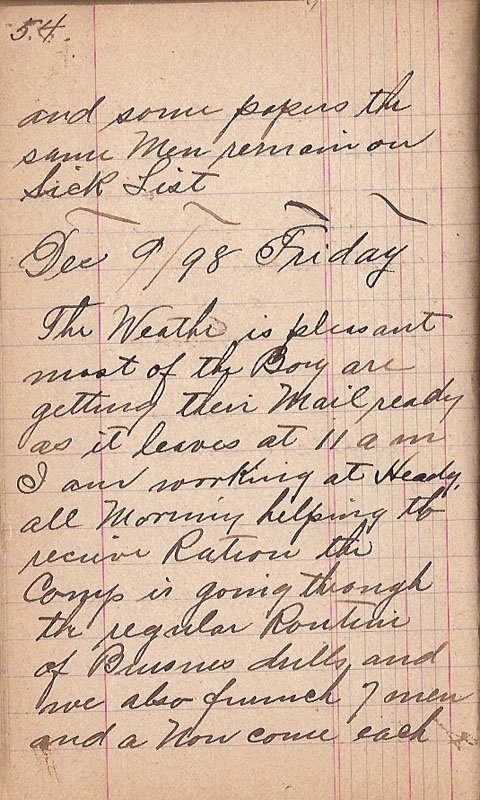 54.
and some papers the
same Men remain on
Sick List
Dec 9/98 Friday
The Weathe is pleasant
most of the Boys are
getting their Mail ready
as it leaves at 11 a m
I am working at Headq.
all Morning helping to
recive Ration the
Comp is going through
the regular Routine
of Busnes drills, and
we also furnich 7 men
and a Non come each